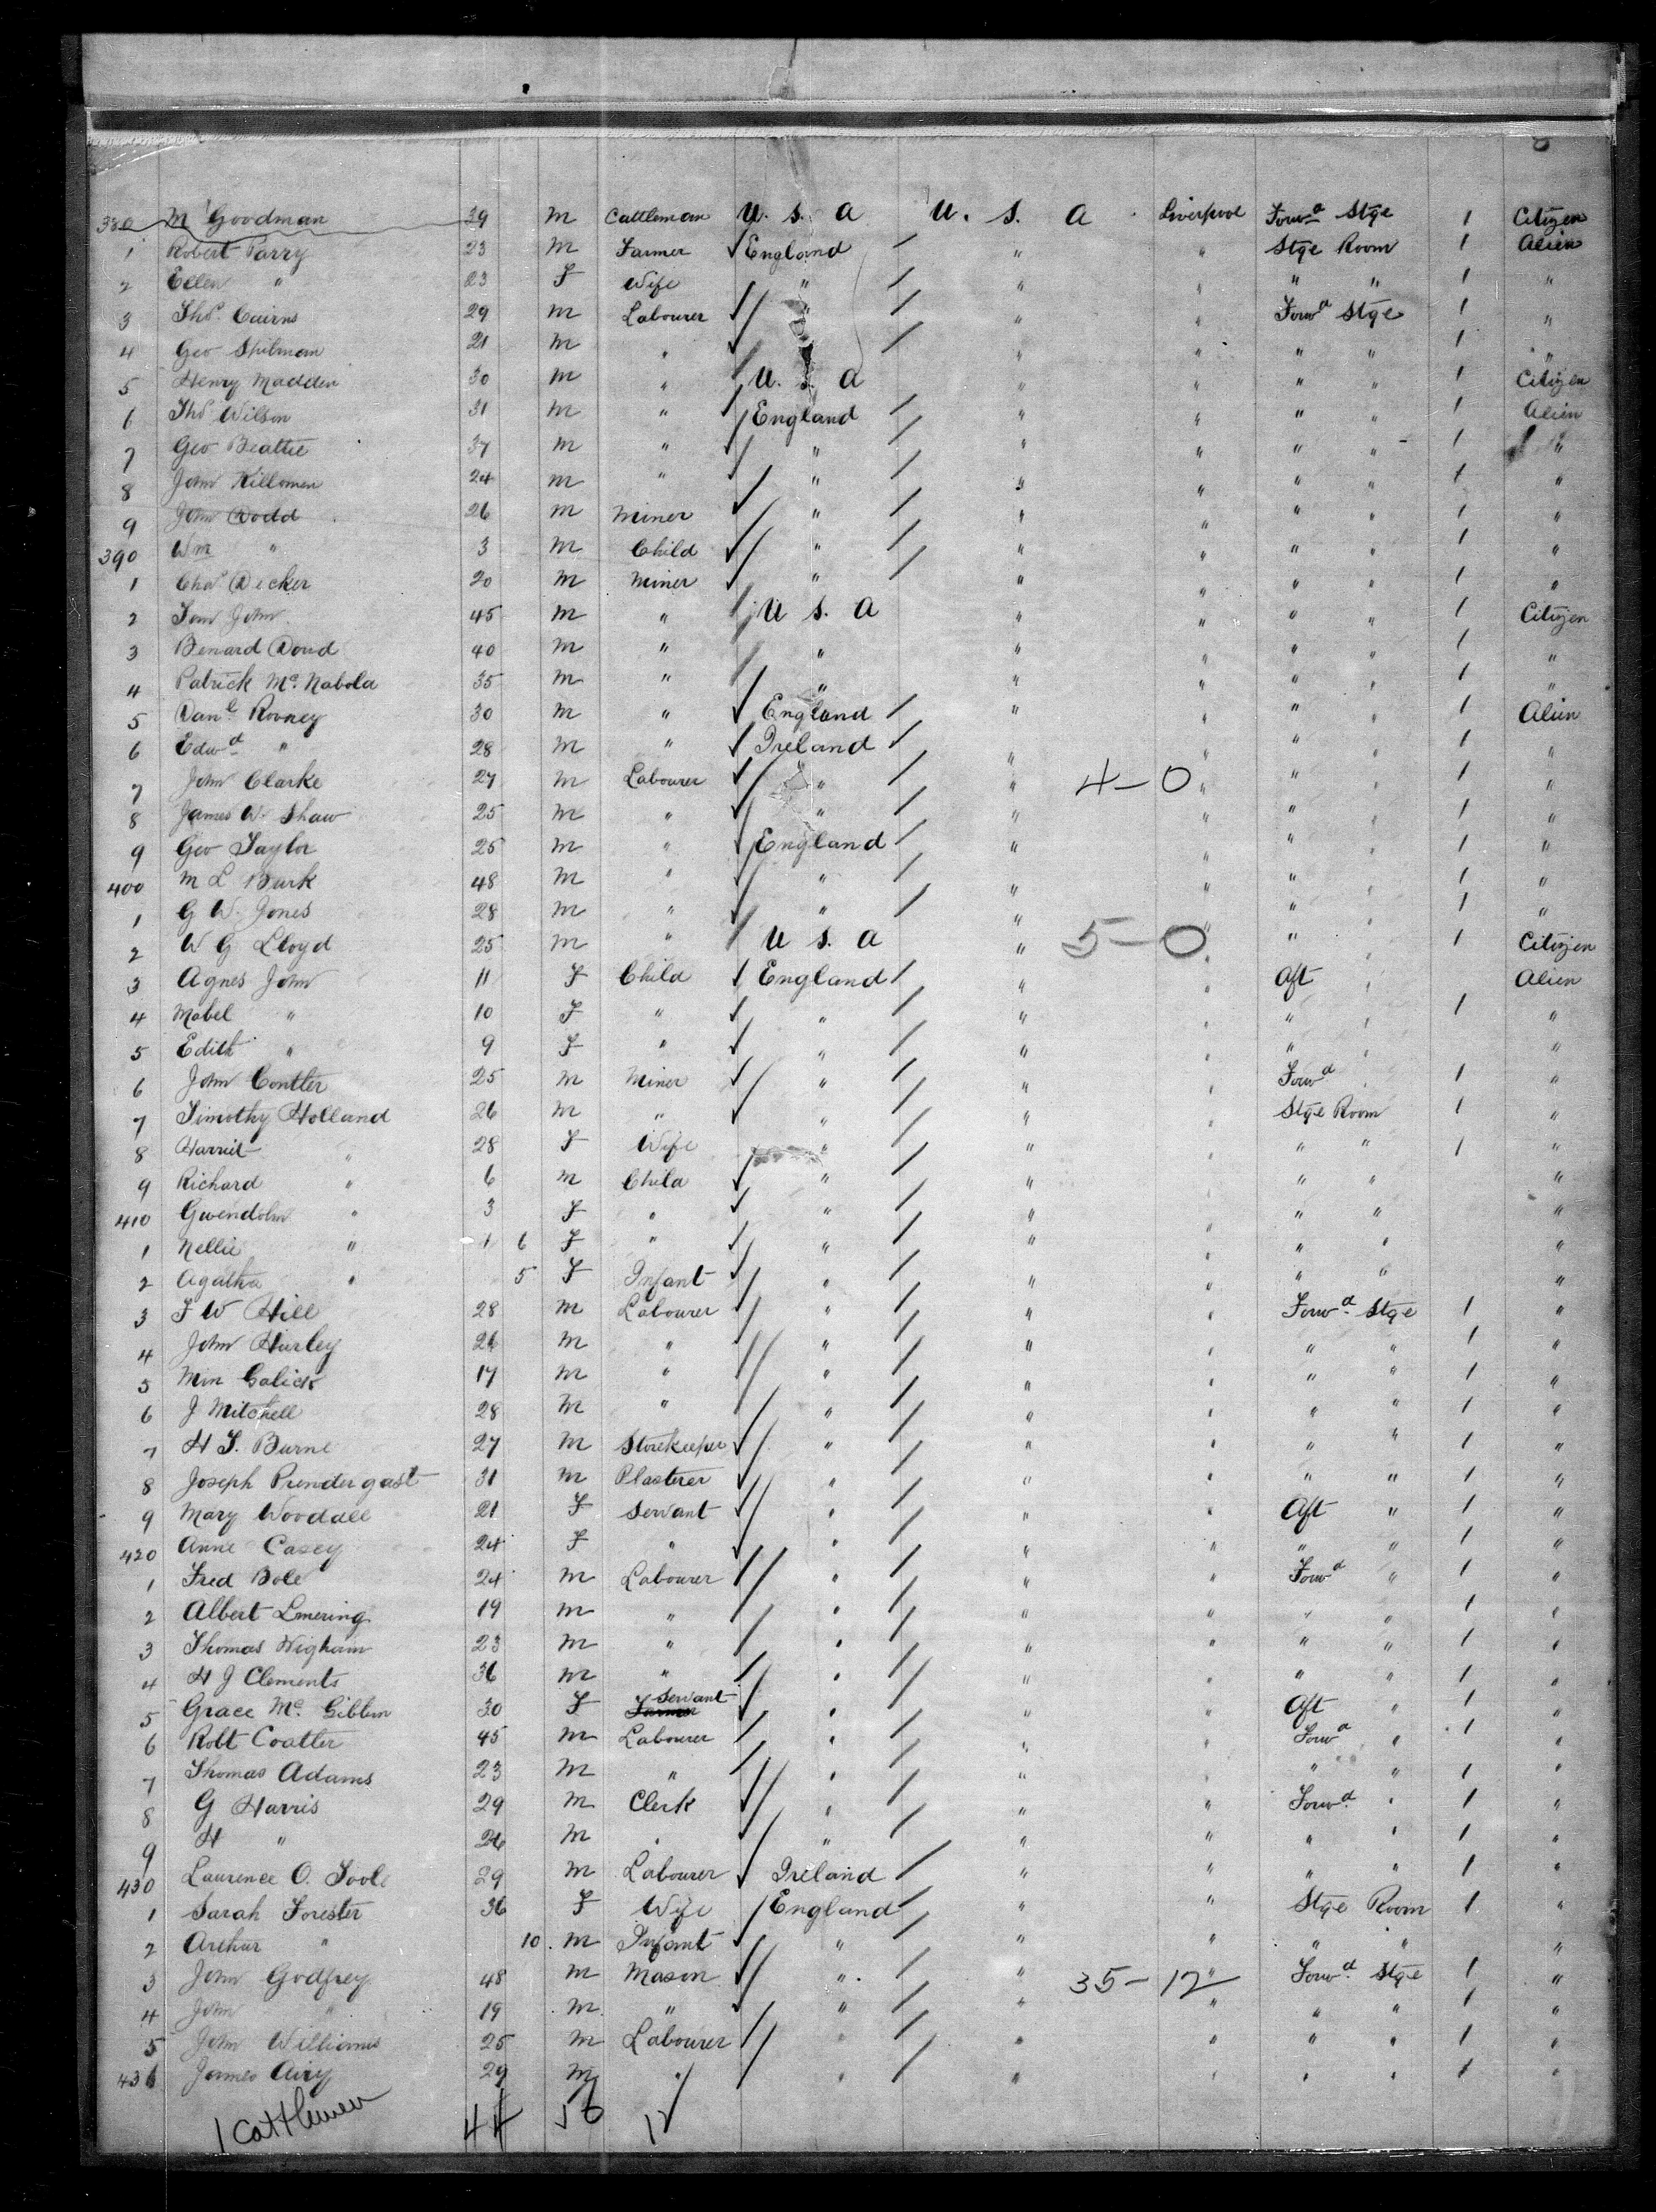 380 M Goodman 39 M Cattleman U. S. A U. S. A Liverpool Forwd Stge 1 Citizen
1 Robert Parry 23 M Farmer England " " Stge Room 1 Alien
2 Ellen " 23 F Wife " " " " " 1 "
3 Thos. Cairns 29 M Labourer " " " Forwd Stge 1 "
4 Geo Spilman 21 M " " " " " " 1 "
5 Henry Madden 30 M " U. S. A " " " " 1 Citizen
6 Thos Wilson 31 M " England " " " " 1 Alien
7 Geo Beattie 37 M " " " " " " 1 "
8 John Killomen 24 M " " " " " " 1 "
9 John Dodd 26 M Miner " " " " " 1 "
390 Wm " 3 M Child " " " " " 1 "
1 Chas Decker 20 M Miner " " " " " 1 "
2 Tom John 45 M " U S. A " " " " 1 Citizen
3 Benard Doud 40 M " " " " " " 1 "
4 Patrick Mc. Nabola 35 M " " " " " " 1 "
5 Danl Rooney 30 M " England " " " " 1 Alien
6 Edwd " 28 M " Ireland " " " " 1 "
7 John Clarke 27 M Labourer " " 4-0 " " " 1 "
8 James W. Shaw 25 M " " " " " 1 "
9 Geo Taylor 25 M " England " " " " 1 "
400 M L Burk 48 M " " " " " " 1 "
1 G W. Jones 28 M " " " " " " 1 "
2 W G Lloyd 25 M " U S. A " 5-0 " " " 1 Citizen
3 Agnes John 11 F Child England " " Aft " Alien
4 Mabel " 10 F " " " " " " 1 "
5 Edith " 9 F " " " " " " "
6 John Contler 25 M Miner " " " Forwd " 1 "
7 Timothy Holland 26 M " " " " Stge Room 1 "
8 Harriet " 28 F Wife " " " " " 1 "
9 Richard " 6 M Child " " " " "
410 Gwendolin " 3 F " " " " " " "
1 Nellie " 1 6 F " " " " " " "
2 Agatha " 5 F Infant " " " " " "
3 F W Hill 28 M Labourer " " " Forwd Stge 1 "
4 John Hurley 26 M " " " " " " 1 "
5 Min Galick 17 M " " " " " " 1 "
6 J Mitchell 28 M " " " " " " 1 "
7 H T. Burne 27 M Storekeeper " " " " " 1 "
8 Joseph Prendergast 31 M Plasterer " " " " " 1 "
9 Mary Woodall 21 F Servant " " " Aft " 1 "
420 Anne Casey 24 F " " " " " " 1 "
1 Fred Bole 24 M Labourer " " " Forwd " 1 "
2 Albert Lmering 19 M " " " " " " 1 "
3 Thomas Wigham 23 M " " " " " " 1 "
4 H J Clements 36 M " " " " " " 1 "
5 Grace Mc. Gibbin 30 F Farmer Servant " " " Aft " 1 "
6 Robt Coatter 45 M Labourer " " " Forwd " 1 "
7 Thomas Adams 23 M " " " " " 1 "
8 G Harris 29 M Clerk " " " Forwd " 1 "
9 H " 26 M " " " " " " 1 "
430 Laurence O. Toole 29 M Labourer Ireland " " " " 1 "
1 Sarah Forester 36 F Wife England " " Stge Room 1 "
2 Arthur " 10 M Infant " " " " " "
3 John Godfrey 48 M Mason " " 35-12 " Forwd Stge 1 "
4 John " 19 M " " " " " " 1 "
5 John Williams 25 M Labourer " " " " " 1 "
436 James Airy 29 M " " " " " " 1 "
1 Cattlemen 44 56 12